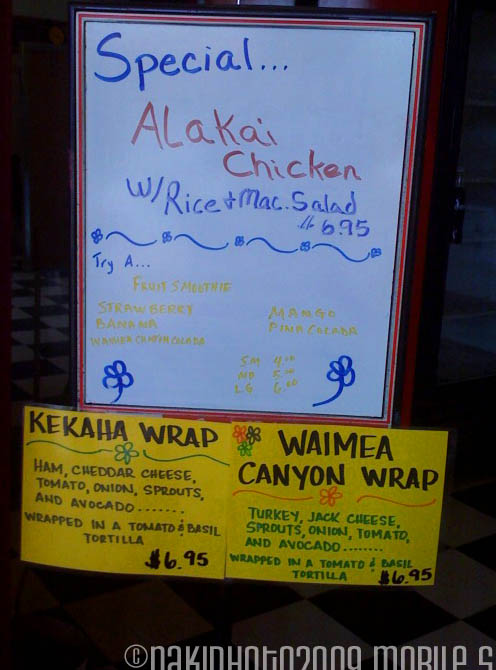 Special...
ALakai
Chicken
W/ Rice + Mac. Salad
$6.95
Try A...
FRUIT SMOOTHIE
STRAWBERRY
BANANA
WAIMEA CANYON COLADA
MANGO
PINA COLADA
SM 4.00
MD 5.00
LG 6.00
KEKAHA WRAP
HAM, CHEDDAR CHEESE,
TOMATO, ONION, SPROUTS,
AND AVOCADO.......
WRAPPED IN A TOMATO & BASIL
TORTILLA
$6.95
WAIMEA
CANYON WRAP
TURKEY, JACK CHEESE,
SPROUTS, ONION, TOMATO,
AND AVOCADO........
WRAPPED IN A TOMATO & BASIL
TORTILLA
$6.95
©NAKIPHOTO2009 MOBILE S